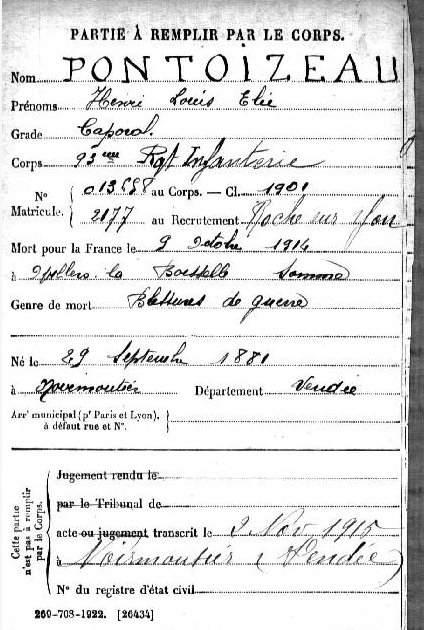 PARTIE À REMPLIR PAR LE CORPS.
Nom PONTOIZEAU
Prénoms Henri Louis Elie
Grade Caporal.
Corps 93ème Rgt Infanterie
N° Matricule. 013558 au Corps. — Cl. 1901
2177 au Recrutement Roche sur Yon
Mort pour la France le 9 octobre 1914
à Ovillers la Boisselle Somme
Genre de mort Blessures de guerre
Né le 29 Septembre 1881
à Noirmoutier Département Vendée
Arrt municipal (pr Paris et Lyon),
à défaut rue et N°.
Cette partie n'est pas à remplir par le Corps.
Jugement rendu le
par le Tribunal de
acte ou jugement transcrit le 2 Nov 1915
à Noirmoutier (Vendée)
N° du registre d'état civil
260-708-1922. [26434]